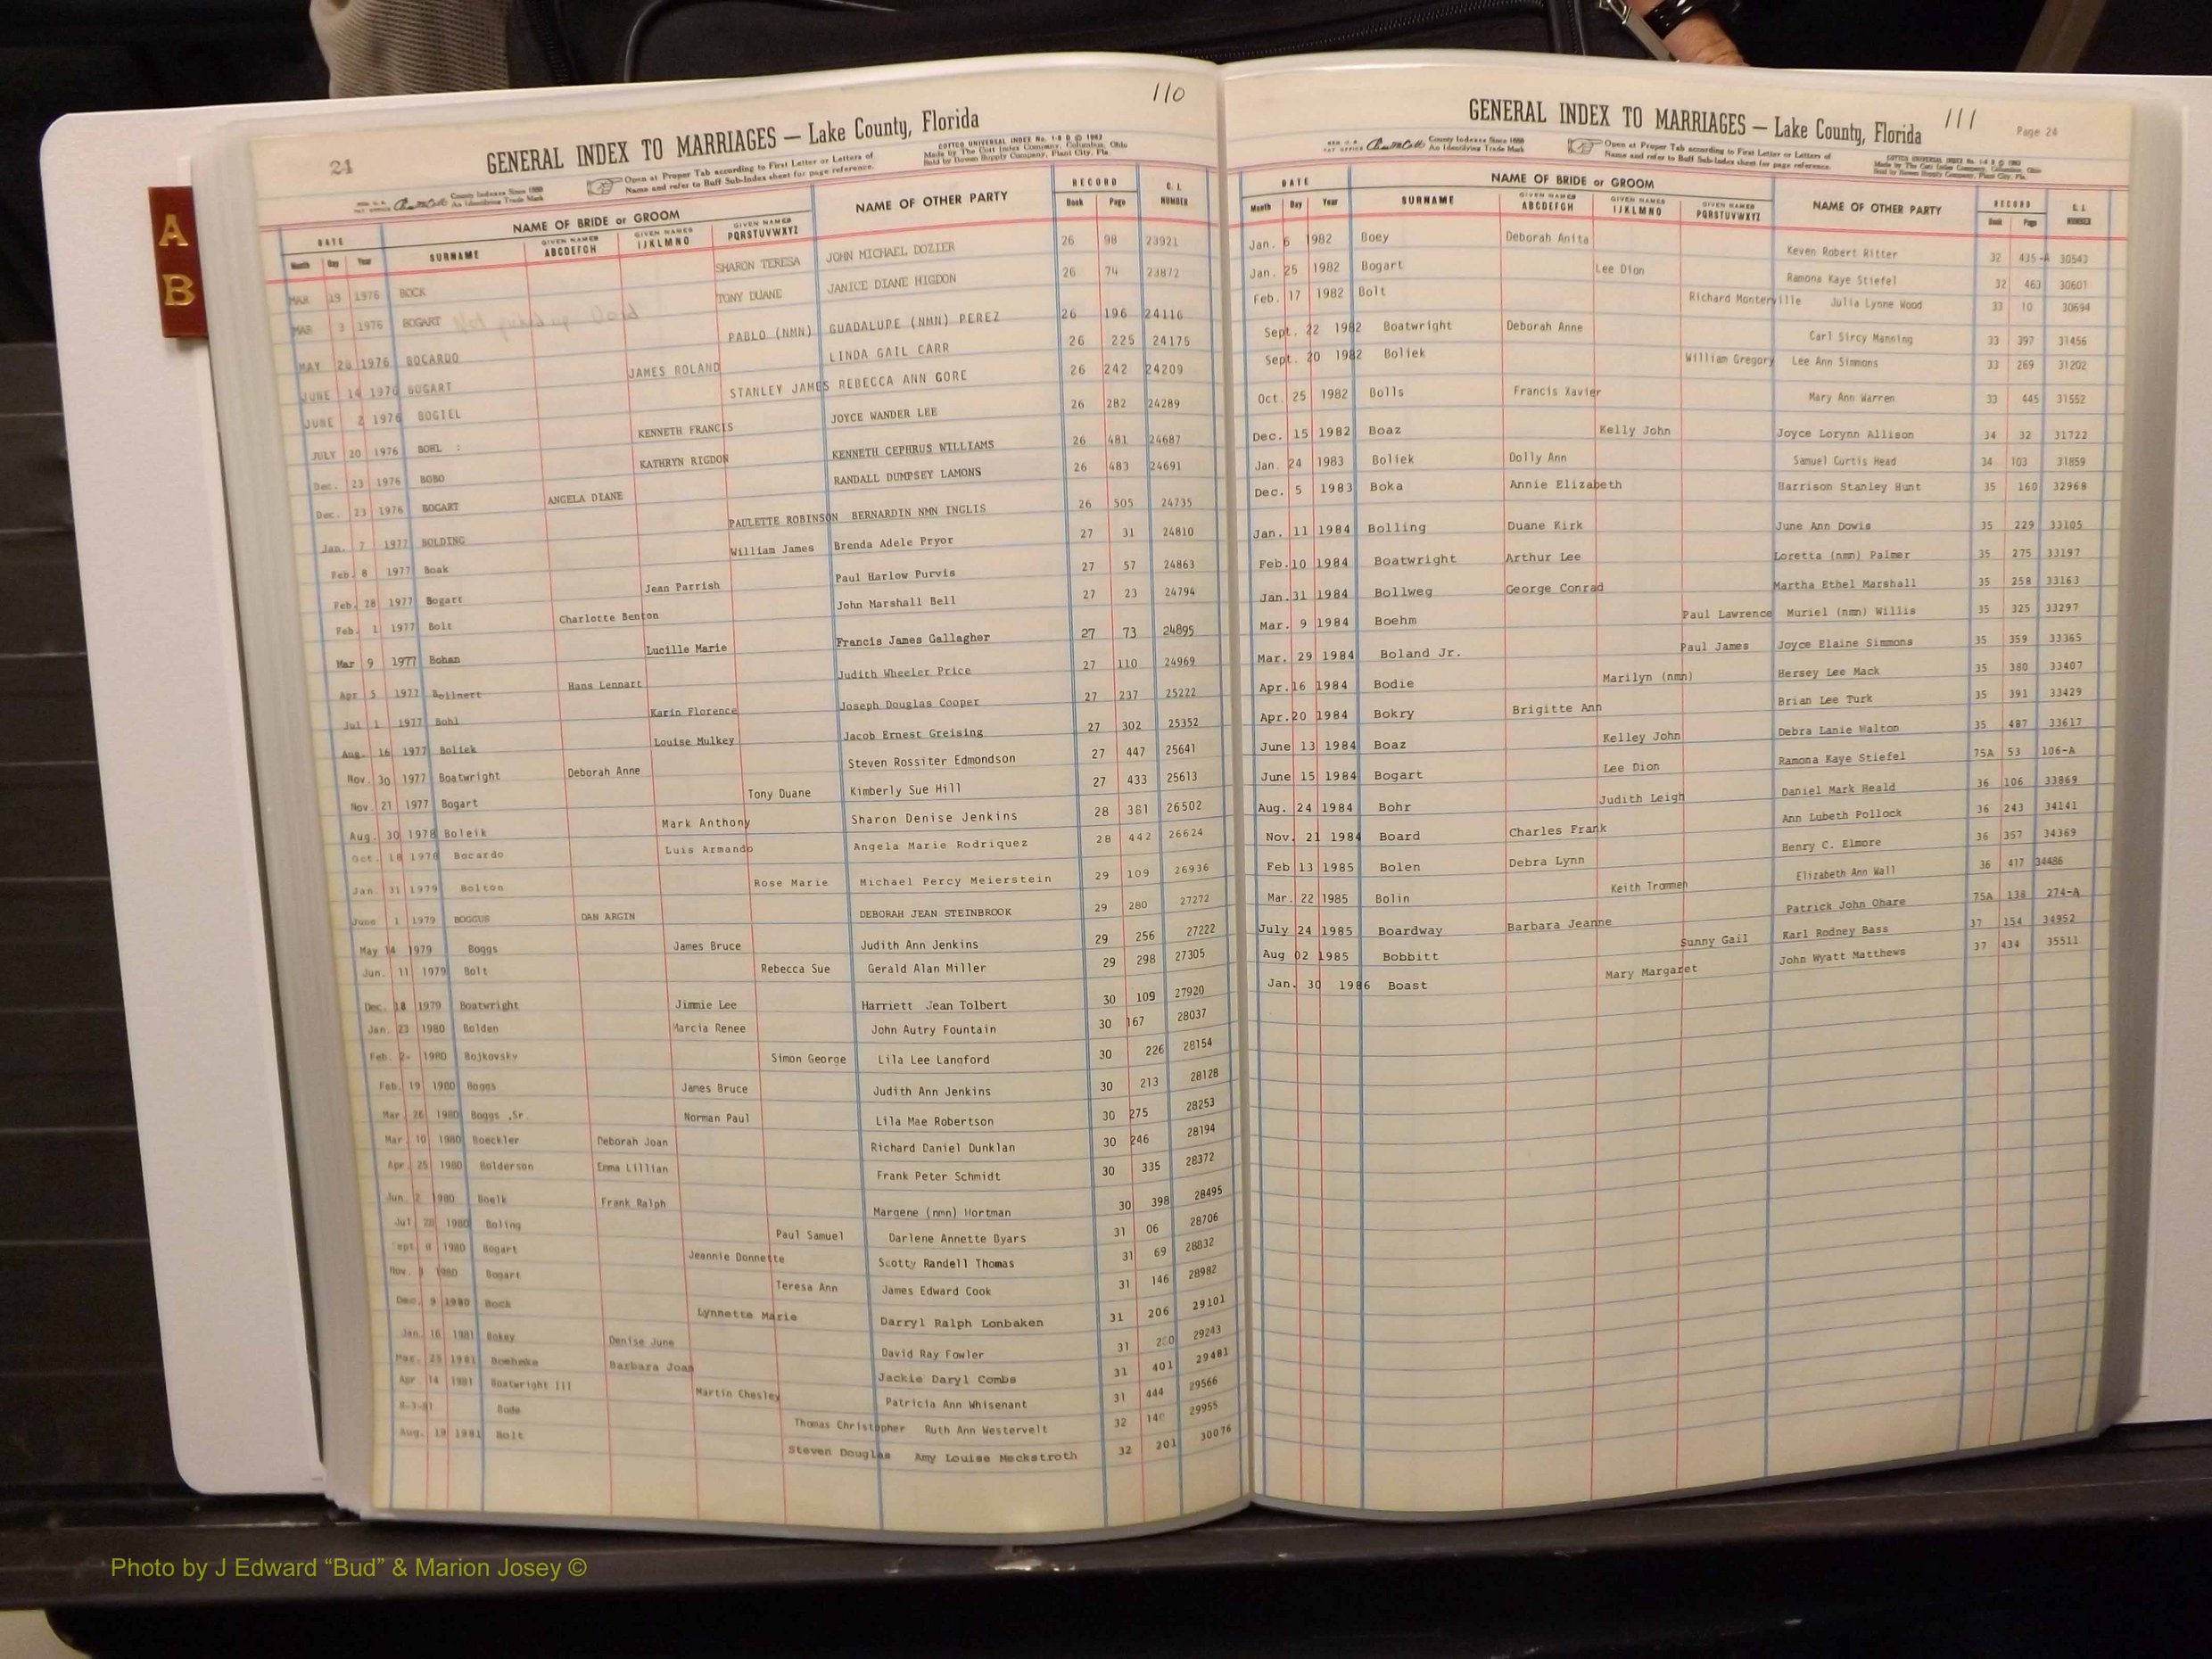 110
24
GENERAL INDEX TO MARRIAGES — Lake County, Florida
County Indexes Since 1888
An Identifying Trade Mark
Open at Proper Tab according to First Letter or Letters of
Name and refer to Buff Sub-Index sheet for page reference.
COTTCO UNIVERSAL INDEX No. 1-8 B © 1983
Made by The Cott Index Company, Columbus, Ohio
Sold by Bowen Supply Company, Plant City, Fla.
A
B
DATE NAME OF BRIDE or GROOM NAME OF OTHER PARTY RECORD C. I. NUMBER
Month Day Year SURNAME GIVEN NAMES ABCDEFGH GIVEN NAMES IJKLMNO GIVEN NAMES PQRSTUVWXYZ Book Page
MAR 19 1976 BOCK SHARON TERESA JOHN MICHAEL DOZIER 26 98 23921
MAR 3 1976 BOGART TONY DUANE JANICE DIANE HIGDON 26 74 23872
MAY 28 1976 BOCARDO PABLO (NMN) GUADALUPE (NMN) PEREZ 26 196 24116
JUNE 14 1976 BOGART JAMES ROLAND LINDA GAIL CARR 26 225 24175
JUNE 2 1976 BOGIEL STANLEY JAMES REBECCA ANN GORE 26 242 24209
JULY 20 1976 BOHL : KENNETH FRANCIS JOYCE WANDER LEE 26 282 24289
Dec. 23 1976 BOBO KATHRYN RIGDON KENNETH CEPHRUS WILLIAMS 26 481 24687
Dec. 23 1976 BOGART ANGELA DIANE RANDALL DUMPSEY LAMONS 26 483 24691
Jan. 7 1977 BOLDING PAULETTE ROBINSON BERNARDIN NMN INGLIS 26 505 24735
Feb 8 1977 Boak William James Brenda Adele Pryor 27 31 24810
Feb. 28 1977 Bogart Jean Parrish Paul Harlow Purvis 27 57 24863
Feb. 1 1977 Bolt Charlotte Benton John Marshall Bell 27 23 24794
Mar 9 1977 Bohan Lucille Marie Francis James Gallagher 27 73 24895
Apr 5 1977 Bollnert Hans Lennart Judith Wheeler Price 27 110 24969
Jul 1 1977 Bohl Karin Florence Joseph Douglas Cooper 27 237 25222
Aug. 16 1977 Boliek Louise Mulkey Jacob Ernest Greising 27 302 25352
Nov. 30 1977 Boatwright Deborah Anne Steven Rossiter Edmondson 27 447 25641
Nov. 21 1977 Bogart Tony Duane Kimberly Sue Hill 27 433 25613
Aug. 30 1978 Boleik Mark Anthony Sharon Denise Jenkins 28 381 26502
Oct. 18 1978 Bocardo Luis Armando Angela Marie Rodriquez 28 442 26624
Jan. 31 1979 Bolton Rose Marie Michael Percy Meierstein 29 109 26936
June 1 1979 BOGGUS DAN ARGIN DEBORAH JEAN STEINBROOK 29 280 27272
May 14 1979 Boggs James Bruce Judith Ann Jenkins 29 256 27222
Jun. 11 1979 Bolt Rebecca Sue Gerald Alan Miller 29 298 27305
Dec. 18 1979 Boatwright Jimmie Lee Harriett Jean Tolbert 30 109 27920
Jan. 23 1980 Bolden Marcia Renee John Autry Fountain 30 167 28037
Feb. 2- 1980 Bojkovsky Simon George Lila Lee Langford 30 226 28154
Feb. 19 1980 Boggs James Bruce Judith Ann Jenkins 30 213 28128
Mar. 26 1980 Boggs ,Sr. Norman Paul Lila Mae Robertson 30 275 28253
Mar. 10 1980 Boeckler Deborah Joan Richard Daniel Dunklan 30 246 28194
Apr. 25 1980 Bolderson Emma Lillian Frank Peter Schmidt 30 335 28372
Jun. 2 1980 Boelk Frank Ralph Margene (nmn) Hortman 30 398 28495
Jul 20 1980 Boling Paul Samuel Darlene Annette Byars 31 06 28706
Sept 8 1980 Bogart Jeannie Donnette Scotty Randell Thomas 31 69 28832
Nov. 1980 Bogart Teresa Ann James Edward Cook 31 146 28982
Dec. 9 1980 Bock Lynnette Marie Darryl Ralph Lonbaken 31 206 29101
Jan. 16 1981 Bokey Denise June David Ray Fowler 31 29243
Mar. 25 1981 Boehnke Barbara Joan Jackie Daryl Combs 31 401 29481
Apr. 14 1981 Boatwright III Martin Chesley Patricia Ann Whisenant 31 444 29566
8-3-81 Bode Thomas Christopher Ruth Ann Westervelt 32 140 29955
Aug. 19 1981 Bolt Steven Douglas Amy Louise Meckstroth 32 201 30076
111
Page 24
GENERAL INDEX TO MARRIAGES — Lake County, Florida
County Indexes Since 1888
An Identifying Trade Mark
Open at Proper Tab according to First Letter or Letters of
Name and refer to Buff Sub-Index sheet for page reference.
COTTCO UNIVERSAL INDEX No. 1-8 B © 1983
Made by The Cott Index Company, Columbus, Ohio
Sold by Bowen Supply Company, Plant City, Fla.
DATE NAME OF BRIDE or GROOM NAME OF OTHER PARTY RECORD C. I. NUMBER
Month Day Year SURNAME GIVEN NAMES ABCDEFGH GIVEN NAMES IJKLMNO GIVEN NAMES PQRSTUVWXYZ Book Page
Jan. 6 1982 Boey Deborah Anita Keven Robert Ritter 32 435-A 30543
Jan. 25 1982 Bogart Lee Dion Ramona Kaye Stiefel 32 463 30601
Feb. 17 1982 Bolt Richard Monterville Julia Lynne Wood 33 10 30694
Sept. 22 1982 Boatwright Deborah Anne Carl Sircy Manning 33 397 31456
Sept. 20 1982 Boliek William Gregory Lee Ann Simmons 33 269 31202
Oct. 25 1982 Bolls Francis Xavier Mary Ann Warren 33 445 31552
Dec. 15 1982 Boaz Kelly John Joyce Lorynn Allison 34 32 31722
Jan. 24 1983 Boliek Dolly Ann Samuel Curtis Head 34 103 31859
Dec. 5 1983 Boka Annie Elizabeth Harrison Stanley Hunt 35 160 32968
Jan. 11 1984 Bolling Duane Kirk June Ann Dowis 35 229 33105
Feb. 10 1984 Boatwright Arthur Lee Loretta (nmn) Palmer 35 275 33197
Jan. 31 1984 Bollweg George Conrad Martha Ethel Marshall 35 258 33163
Mar. 9 1984 Boehm Paul Lawrence Muriel (nmn) Willis 35 325 33297
Mar. 29 1984 Boland Jr. Paul James Joyce Elaine Simmons 35 359 33365
Apr. 16 1984 Bodie Marilyn (nmn) Hersey Lee Mack 35 380 33407
Apr. 20 1984 Bokry Brigitte Ann Brian Lee Turk 35 391 33429
June 13 1984 Boaz Kelley John Debra Lanie Walton 35 487 33617
June 15 1984 Bogart Lee Dion Ramona Kaye Stiefel 75A 53 106-A
Aug. 24 1984 Bohr Judith Leigh Daniel Mark Heald 36 106 33869
Nov. 21 1984 Board Charles Frank Ann Lubeth Pollock 36 243 34141
Feb 13 1985 Bolen Debra Lynn Henry C. Elmore 36 357 34369
Mar. 22 1985 Bolin Keith Trommen Elizabeth Ann Wall 36 417 34486
July 24 1985 Boardway Barbara Jeanne Patrick John Ohare 75A 138 274-A
Aug 02 1985 Bobbitt Sunny Gail Karl Rodney Bass 37 154 34952
Jan. 30 1986 Boast Mary Margaret John Wyatt Matthews 37 434 35511
Photo by J Edward “Bud” & Marion Josey ©